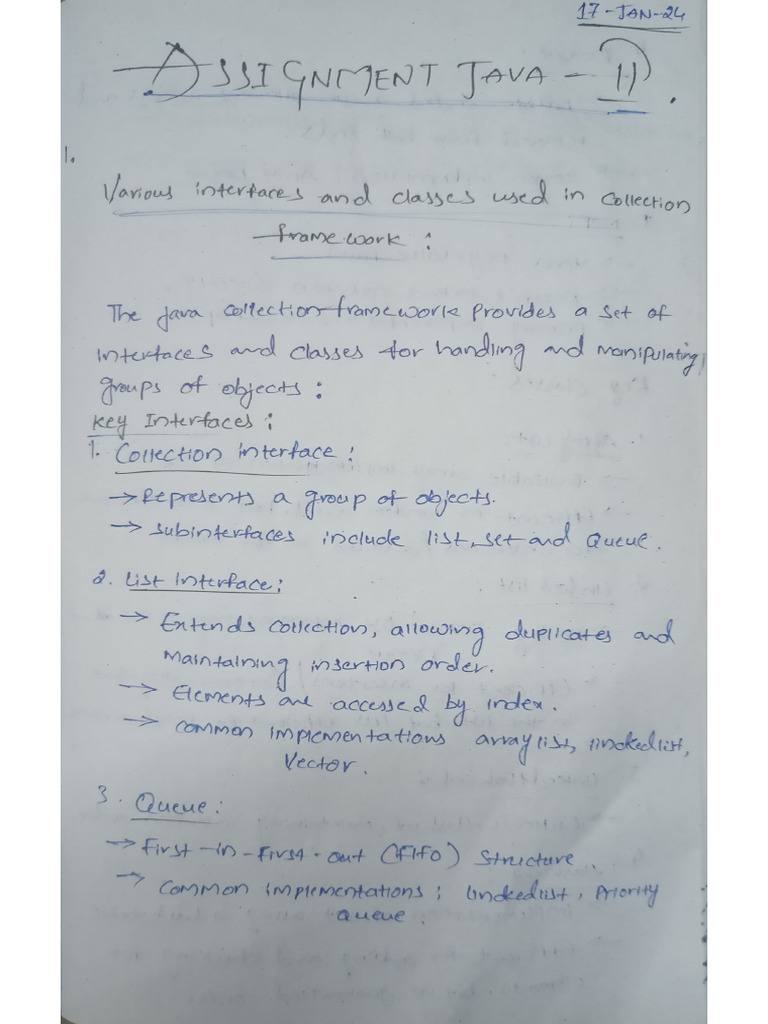 17-JAN-24
ASSIGNMENT JAVA - 11.
1.
Various interfaces and classes used in collection
framework:
The java collection framework provides a set of
interfaces and classes for handling and manipulating
groups of objects:
key Interfaces:
1. Collection interface:
→ Represents a group of objects.
→ subinterfaces include list, set and Queue.
2. List interface:
→ Extends collection, allowing duplicates and
maintaining insertion order.
→ Elements are accessed by index.
→ common implementations arraylist, linkedlist,
Vector.
3. Queue:
→ First-in-First-out (FIFO) structure.
→ common implementations: linkedlist, Priority
queue.